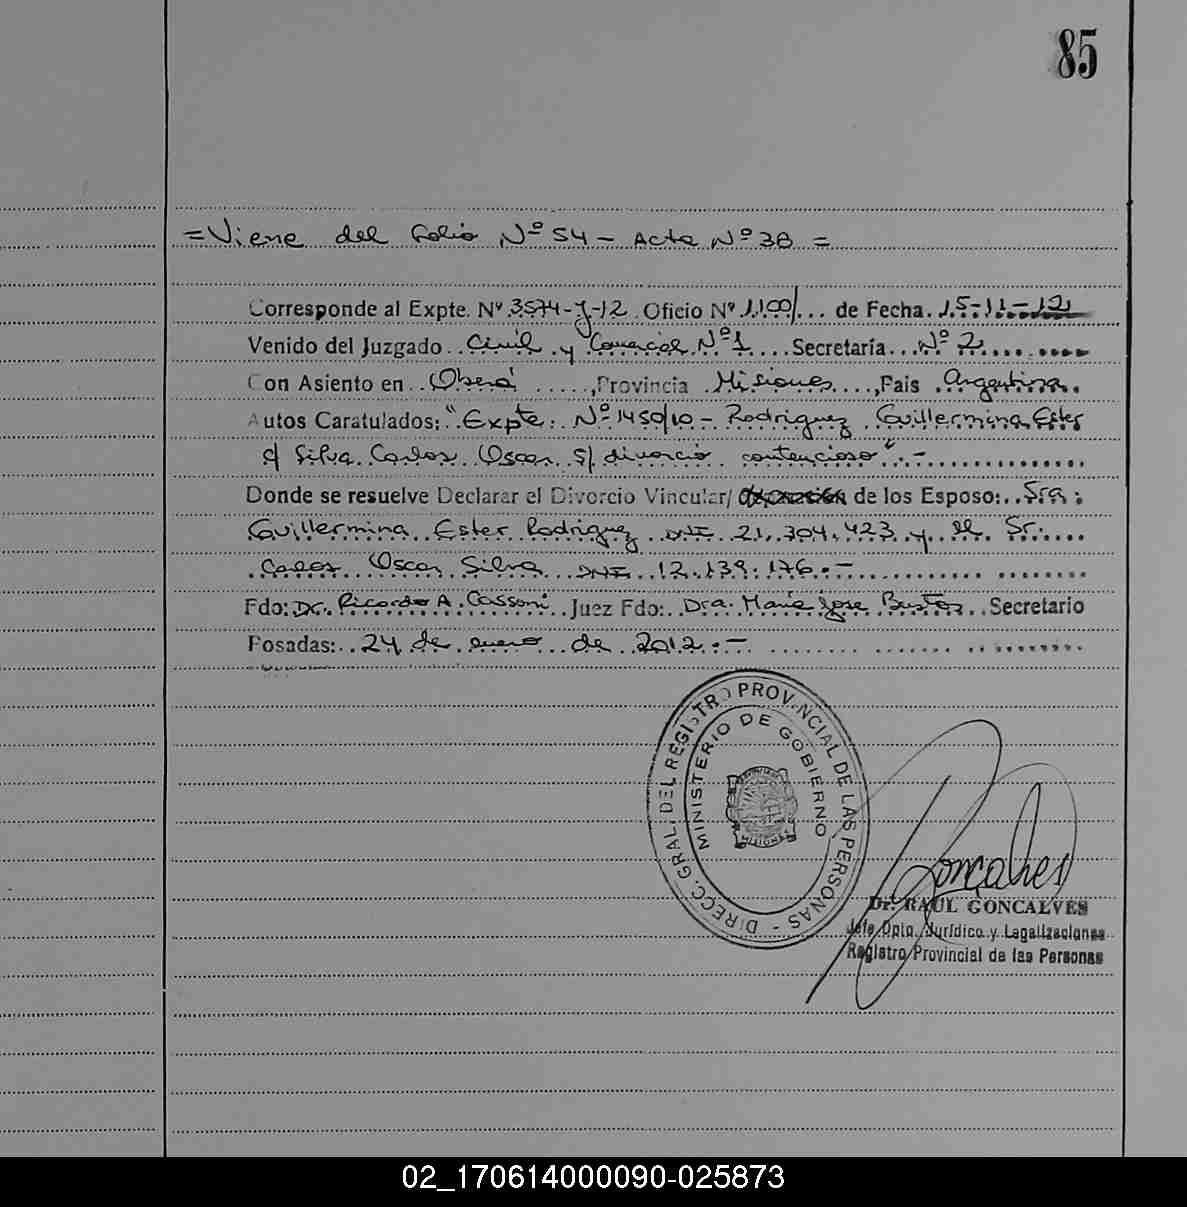 85
=Viene del Folio Nº 54 - Acta Nº 38 =
Corresponde al Expte. Nº 3574-J-12 Oficio Nº 1.100/... de Fecha 15-11-12
Venido del Juzgado Civil y Comercial Nº 1 Secretaría Nº 2
Con Asiento en Oberá, Provincia Misiones, País Argentina.
Autos Caratulados: "Expte. Nº 1450/10 - Rodriguez Guillermina Ester
c/ Silva Carlos Oscar s/ divorcio contencioso".-
Donde se resuelve Declarar el Divorcio Vincular/ de los Esposo: Sra:
Guillermina Ester Rodriguez DNI 21.304.423 y el Sr.
Carlos Oscar Silva DNI 12.139.176.-
Fdo: Dr. Ricardo A. Cassoni Juez Fdo: Dra. Maria Jose Bustos Secretario
Posadas: 24 de enero de 2012.-
DIRECC. GRAL. DEL REGISTRO PROVINCIAL DE LAS PERSONAS -
MINISTERIO DE GOBIERNO
MISIONES
Goncalves
Dr. RAUL GONCALVES
Jefe Dpto. Jurídico y Legalizaciones
Registro Provincial de las Personas
02_170614000090-025873